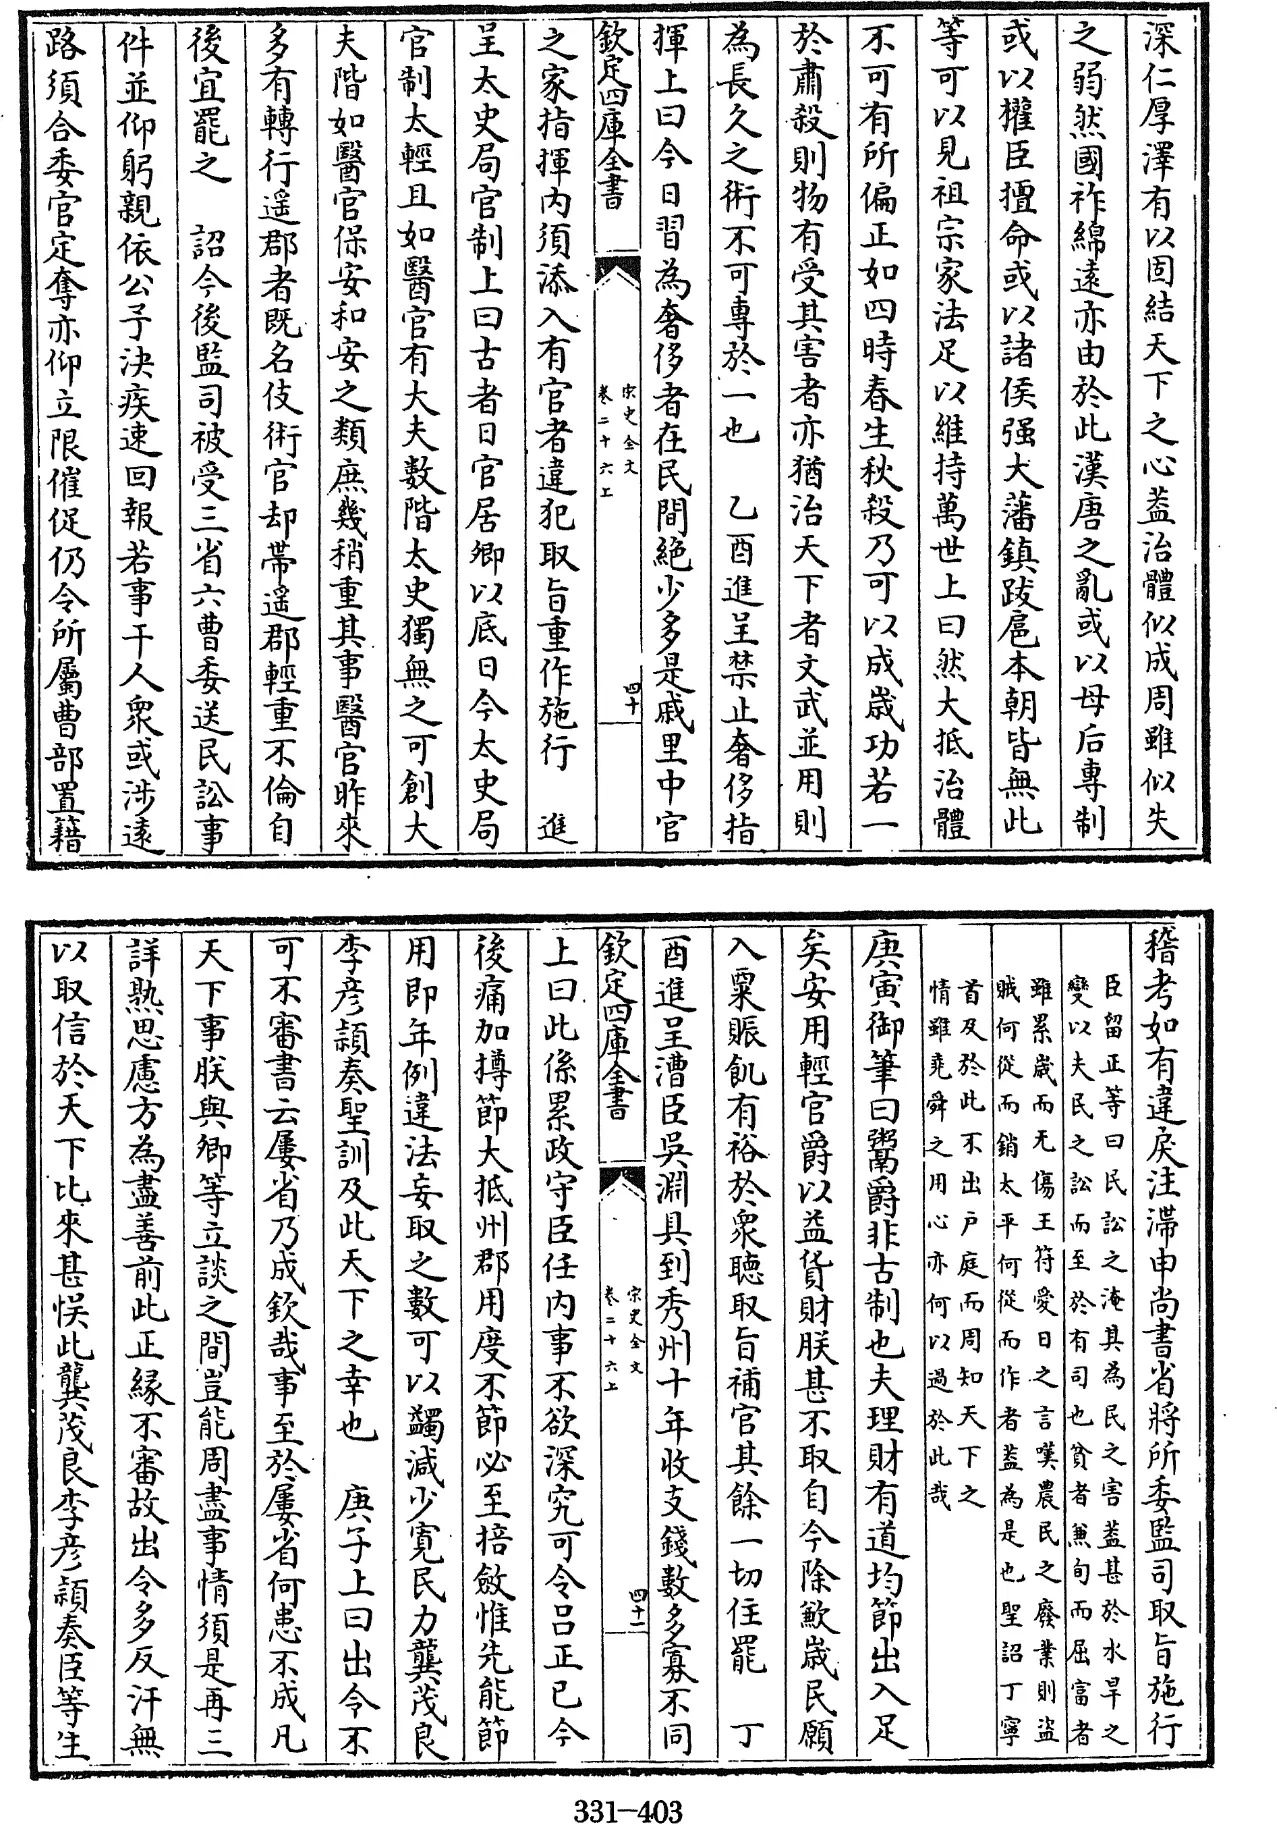 深仁厚澤有以固結天下之心葢治體似成周雖似失
之弱然國祚綿遠亦由於此漢唐之亂或以母后專制
或以權臣擅命或以諸侯强大藩鎮跋扈本朝皆無此
等可以見祖宗家法足以維持萬世上曰然大抵治體
不可有所偏正如四時春生秋殺乃可以成歲功若一
於肅殺則物有受其害者亦猶治天下者文武並用則
為長久之術不可專於一也　乙酉進呈禁止奢侈指
揮上曰今日習為奢侈者在民間絶少多是戚里中官
欽定四庫全書
宋史全文
卷二十六上
四十
之家指揮内須添入有官者違犯取旨重作施行　進
呈太史局官制上曰古者日官居卿以底日今太史局
官制太輕且如醫官有大夫數階太史獨無之可創大
夫階如醫官保安和安之類庶幾稍重其事醫官昨來
多有轉行遥郡者既名伎術官却帶遥郡輕重不倫自
後宜罷之　詔今後監司被受三省六曹委送民訟事
件並仰躬親依公予決疾速回報若事干人衆或涉遠
路須合委官定奪亦仰立限催促仍令所屬曹部置籍
稽考如有違戾注滯申尚書省將所委監司取旨施行
臣留正等曰民訟之淹其為民之害葢甚於水旱之
變以夫民之訟而至於有司也貧者兼旬而屈富者
雖累歲而无傷王符愛日之言嘆農民之廢業則盜
賊何從而銷太平何從而作者葢為是也聖詔丁寧
首及於此不出户庭而周知天下之
情雖堯舜之用心亦何以過於此哉
庚寅御筆曰鬻爵非古制也夫理財有道均節出入足
矣安用輕官爵以益貨財朕甚不取自今除歉歲民願
入粟賑飢有裕於衆聽取旨補官其餘一切住罷　丁
酉進呈漕臣吳淵具到秀州十年收支錢數多寡不同
欽定四庫全書
宋史全文
卷二十六上
四十一
上曰此係累政守臣任内事不欲深究可令吕正已今
後痛加撙節大抵州郡用度不節必至掊斂惟先能節
用即年例違法妄取之數可以蠲減少寬民力龔茂良
李彦頴奏聖訓及此天下之幸也　庚子上曰出令不
可不審書云屢省乃成欽哉事至於屢省何患不成凡
天下事朕與卿等立談之間豈能周盡事情須是再三
詳熟思慮方為盡善前此正緣不審故出令多反汗無
以取信於天下比來甚悞此龔茂良李彦頴奏臣等生
331-403